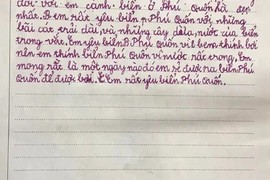 đối với em cảnh biển ở Phú Quốn là đẹp
nhất. Em rất yêu biển Phú Quốn với những
bãi cát trải dài và những cây dừa, nước của biển
trong vắt. Em yêu biển Phú Quốn vì bem thích bơi
nên em thính biển Phú Quốn vì nước rất trong. Em
mong rắc là một ngày nào đó em sẽ được ra biển Phú
Quốn để được bơi. Em rất yêu biển Phú Quốn.